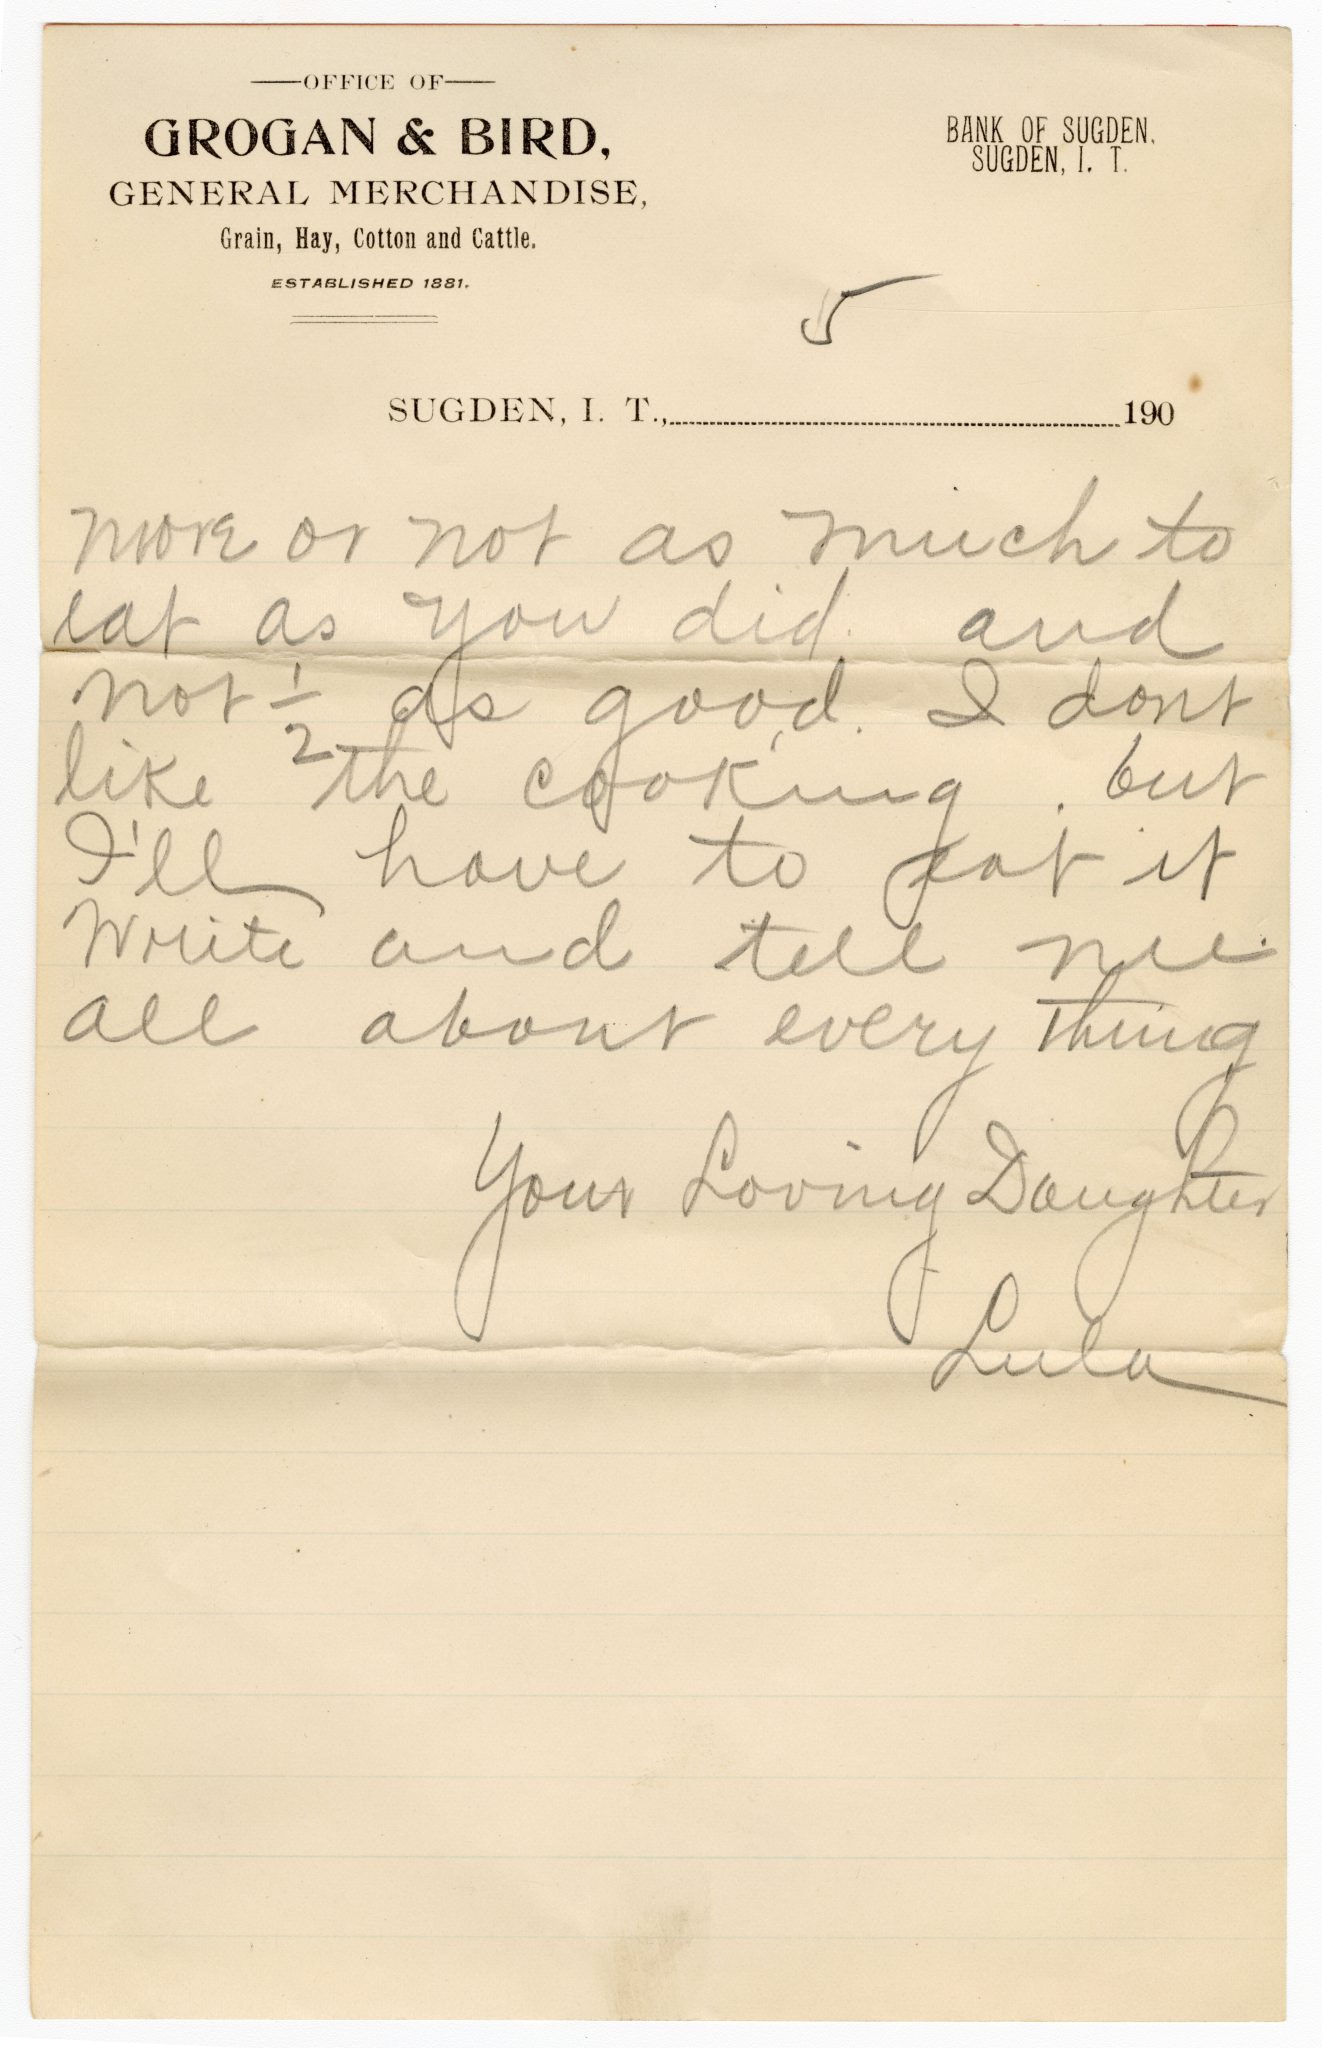 OFFICE OF
GROGAN & BIRD,
GENERAL MERCHANDISE,
Grain, Hay, Cotton and Cattle.
ESTABLISHED 1881.
BANK OF SUGDEN,
SUGDEN, I. T.
5
SUGDEN, I. T., 190
more or not as much to
eat as you did. and
not 1/2 as good. I dont
like the cooking. but
I'll have to eat it
Write and tell me.
all about every thing
Your Loving Daughter
Lula